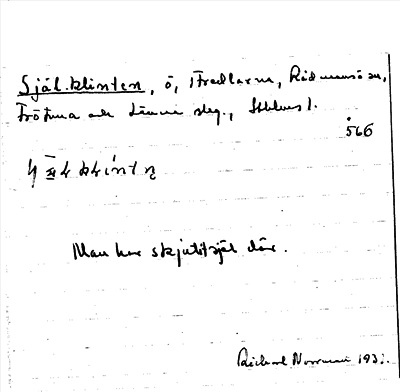 Själ.klinten, ö, Fredlarna, Rådmansö sn,
Frötuna och Länna skg., Sthlms l.
566
Man har skjutit själ där.
Rickard Norrman 193